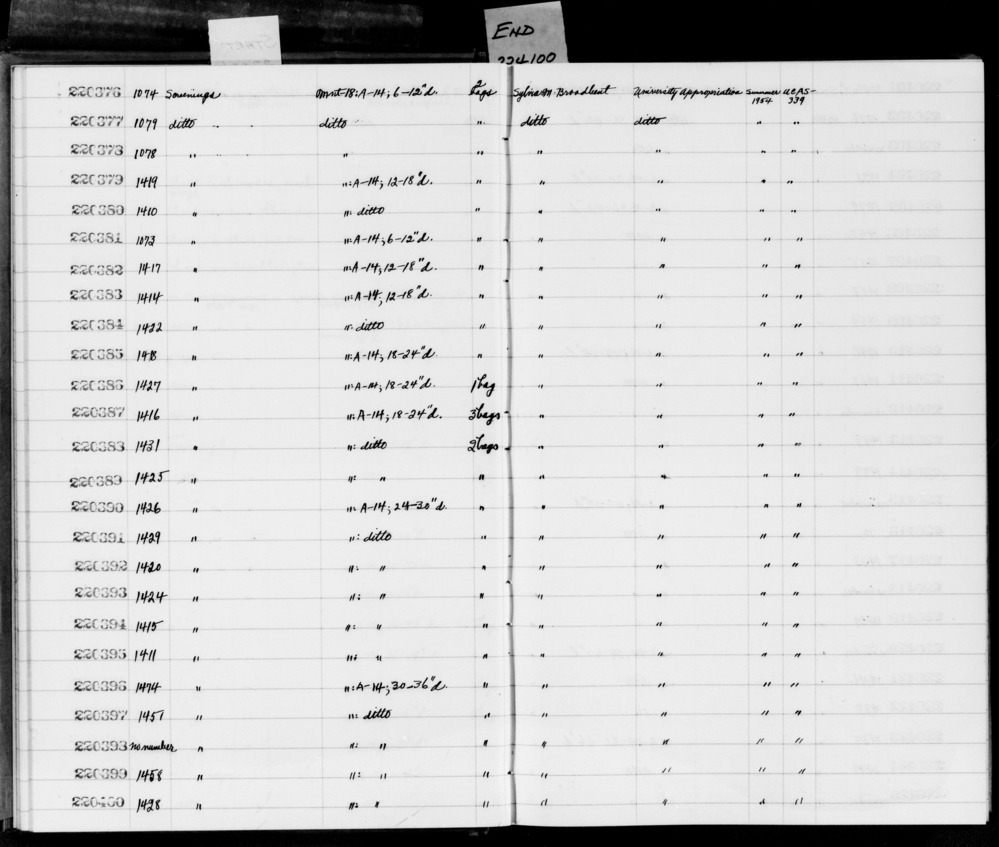 END
224100
220376 1074 Screenings Mnt-18:A-14; 6-12"d. 2 bags Sylvia M. Broadbent University appropriation Summer 1954 UCAS-339
220377 1079 ditto ditto " ditto ditto " "
220378 1078 " " " " " " "
220379 1419 " ":A-14; 12-18"d. " " " " "
220380 1410 " ": ditto " " " " "
220381 1073 " ":A-14; 6-12"d. " " " " "
220382 1417 " ":A-14; 12-18"d. " " " " "
220383 1414 " ":A-14; 12-18"d. " " " " "
220384 1422 " ": ditto " " " " "
220385 1418 " ":A-14; 18-24"d. " " " " "
220386 1427 " ":A-14; 18-24"d. 1 bag " " " "
220387 1416 " ":A-14; 18-24"d. 3 bags " " " "
220388 1431 " ": ditto 2 bags " " " "
220389 1425 " ": " " " " " "
220390 1426 " ": A-14; 24-30"d. " " " " "
220391 1429 " ": ditto " " " " "
220392 1420 " ": " " " " " "
220393 1424 " ": " " " " " "
220394 1415 " ": " " " " " "
220395 1411 " ": " " " " " "
220396 1474 " ":A-14; 30-36"d. " " " " "
220397 1451 " ": ditto " " " " "
220398 no number " ": " " " " " "
220399 1458 " ": " " " " " "
220400 1428 " ": " " " " " "